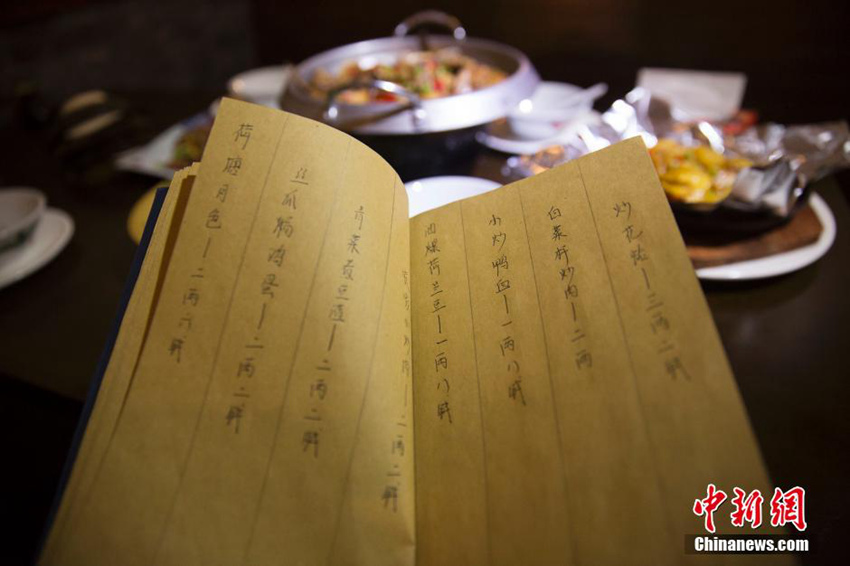 炒花蛤—三两二钱
白菜杆炒肉—二两
小炒鸭血—一两八钱
油爆荷兰豆—一两八钱
二两二钱
青菜煮豆渣—二两二钱
丝瓜焖鸡蛋—二两二钱
荷塘月色—二两六钱
中新网
Chinanews.com